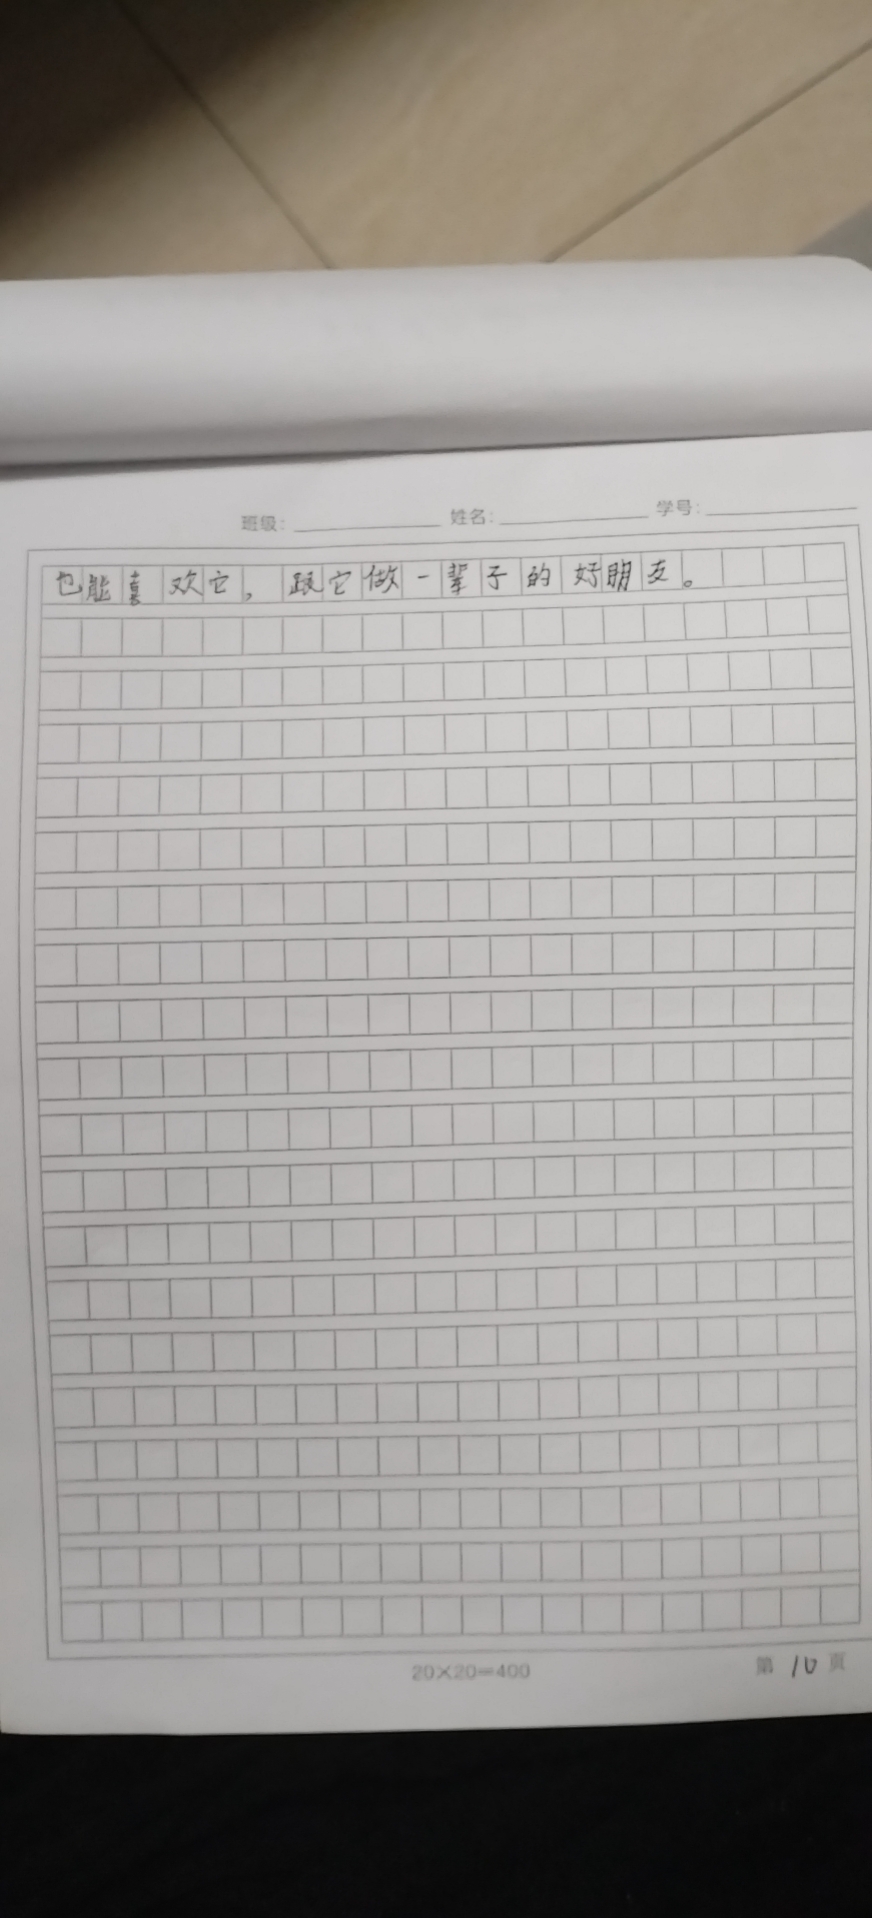 班级: 姓名: 学号:
也能喜欢它，跟它做一辈子的好朋友。
20×20=400
第10页